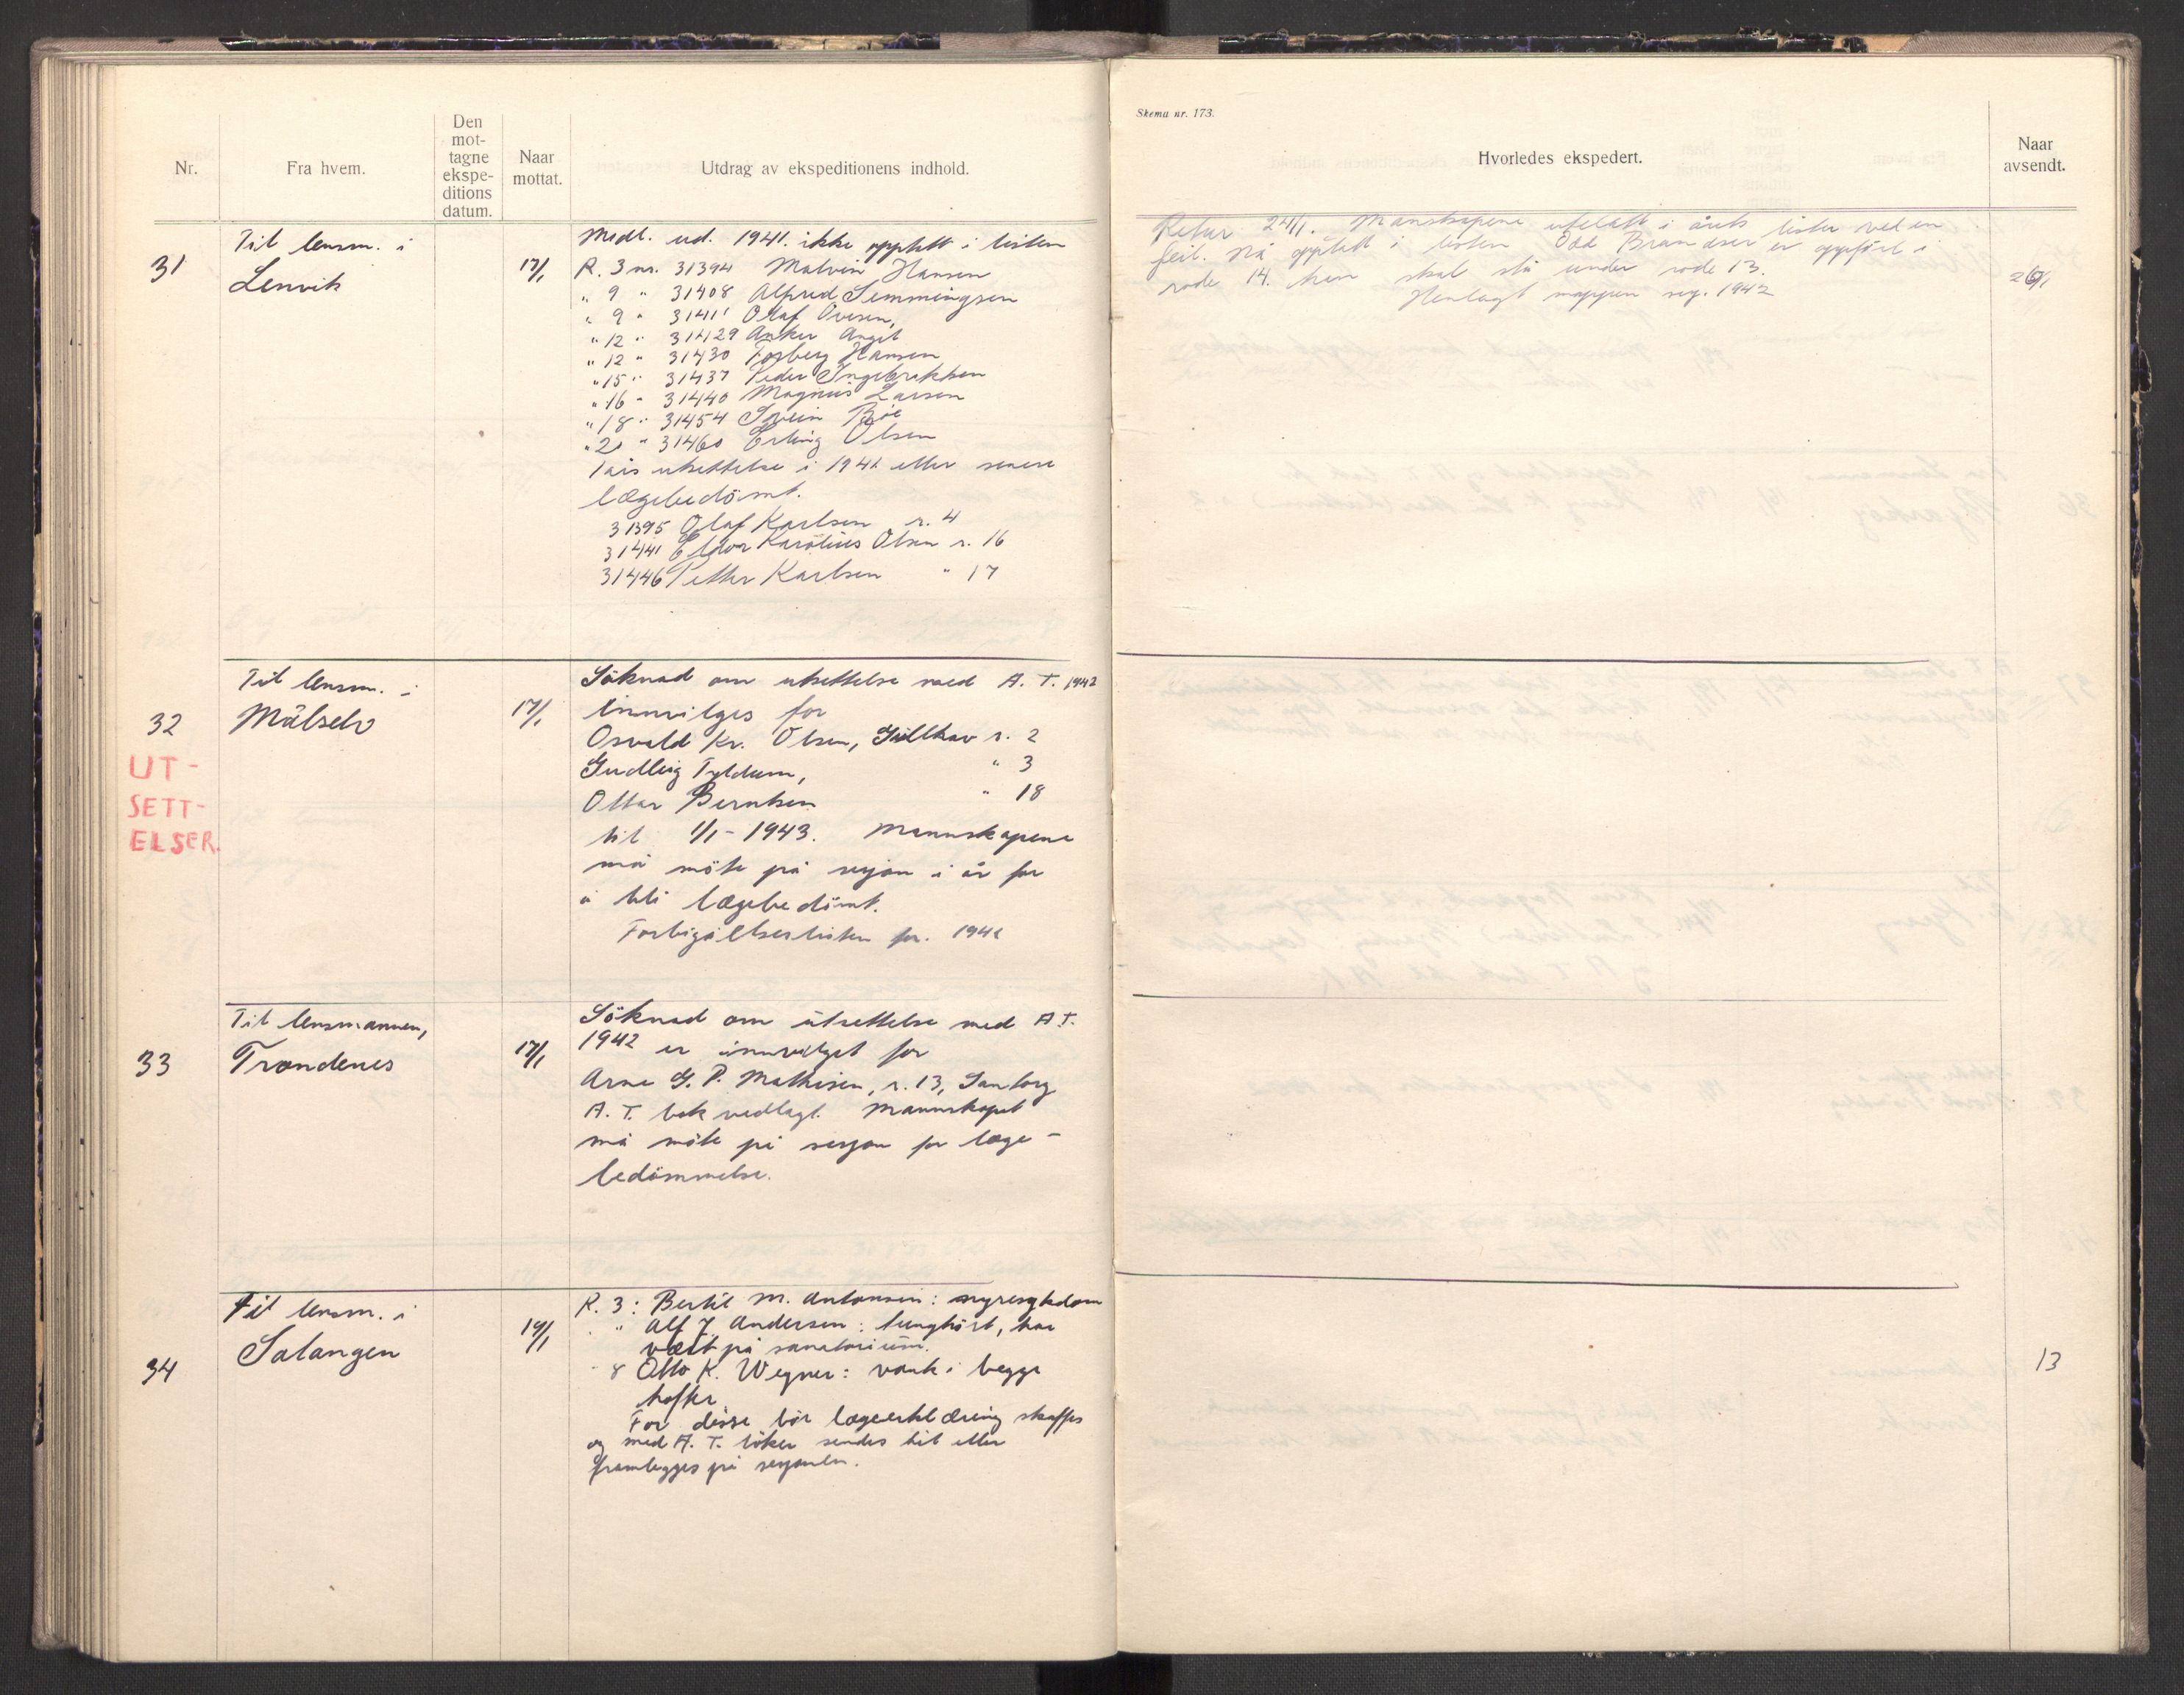 Nr.
Fra hvem.
Den
mot-
tagne
ekspe-
ditions
datum.
Naar
mottat.
Utdrag av ekspeditionens indhold.
31
Til lensm. i
Lenvik
17/1
Midl. ud. 1941. ikke opptatt i listen
R. 3 nr. 31394 Malvin Hansen
" 9 " 31408 Alfred Semmingsen
" 9 " 31411 Olaf Ovesen,
" 12 " 31429 Anker Angel
" 12 " 31430 Torberg Hansen
" 15 " 31437 Peder Ingebrektsen
" 16 " 31440 Magnus Larsen
" 18 " 31454 Svein Bøe
" 20 " 31460 Erling Olsen
utsettelse i 1941 eller senere
lægebedömt.
31395 Olaf Karlsen r. 4
31441 Karolius Olsen r. 16
31446 Petter Karlsen " 17
32
UT-
SETT-
ELSER.
Til lensm. i
Målselv
17/1
Söknad om utsettelse med A. T. 1942
innvilges for
Osvald Kr. Olsen, r. 2
Gudleig Tyldum, " 3
Ottar Berntsen " 18
til 1/1 - 1943. Mannskapene
må möte på sesjon i år for
å bli lægebedömt.
Forbigåelseslisten for 1941
33
Til lensmannen,
Trondenes
17/1
Söknad om utsettelse med A.T.
1942 er innvilget for
Arne G. P. Mathisen, r. 13, Santorg
A. T. bok vedlagt. Mannskapet
må möte på sesjon for læge-
bedömmelse.
34
Til lensm. i
Salangen
19/1
R. 3: Bertil M. Antonsen: nyresykdom
" Alf J. Andersen: tunghört, har
vært på sanatorium.
" 8 Otto K. Wegner: vank i begge
hofter.
For disse bör lægeerklæring skaffes
og med A. T. böker sendes hit eller
framlegges på sesjonen.
Skema nr. 173.
Hvorledes ekspedert.
Naar
avsendt.
Retur 24/1. Manskapene utelatt i årets lister ved en
feil. Nå opptatt i listen Odd Brandser er oppfört i
rode 14. han skal stå under rode 13.
Henlagt mappen seg. 1942
26/1
13